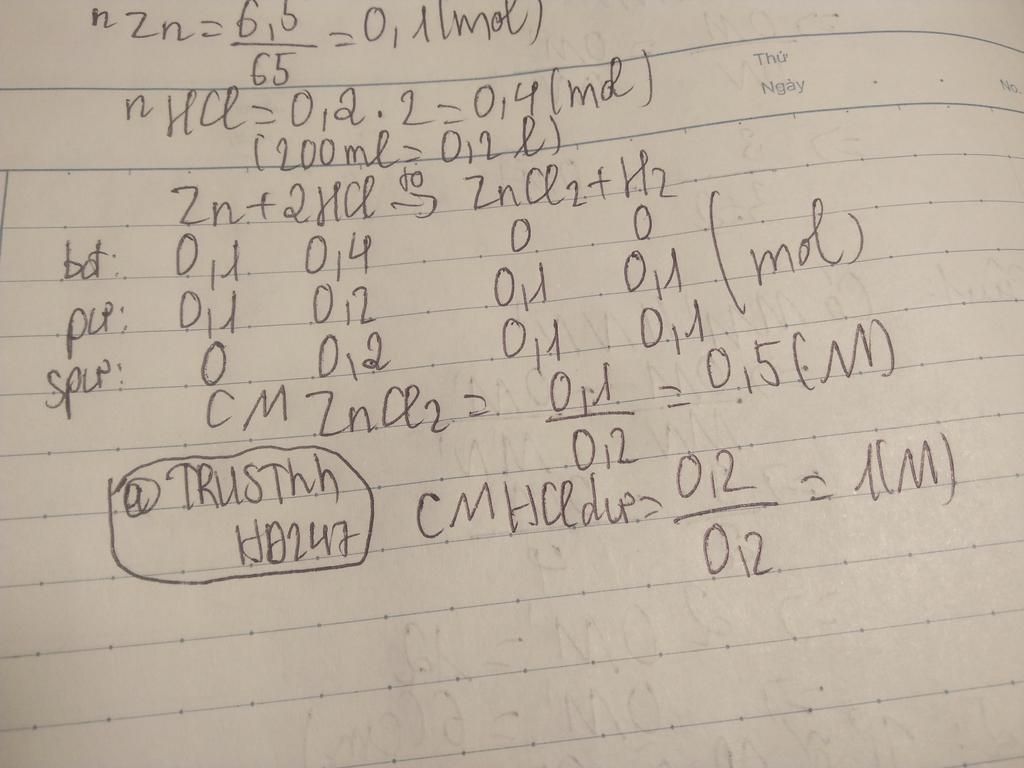 nZn = 6,5/65 = 0,1 (mol)
Thứ
Ngày
No.
nHCl = 0,2 . 2 = 0,4 (mol)
(200ml = 0,2 l)
Zn + 2HCl t° → ZnCl2 + H2
bđ: 0,1 0,4 0 0
pư: 0,1 0,2 0,1 0,1 (mol)
spư: 0 0,2 0,1 0,1
CM ZnCl2 = 0,1/0,2 = 0,5 (M)
@ TRUSThh
HD247
CM HCl dư = 0,2/0,2 = 1(M)